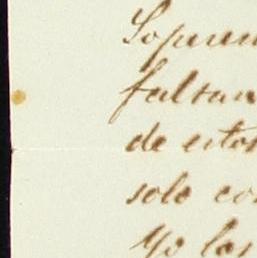 faltan
de estos
solo co
Yo los